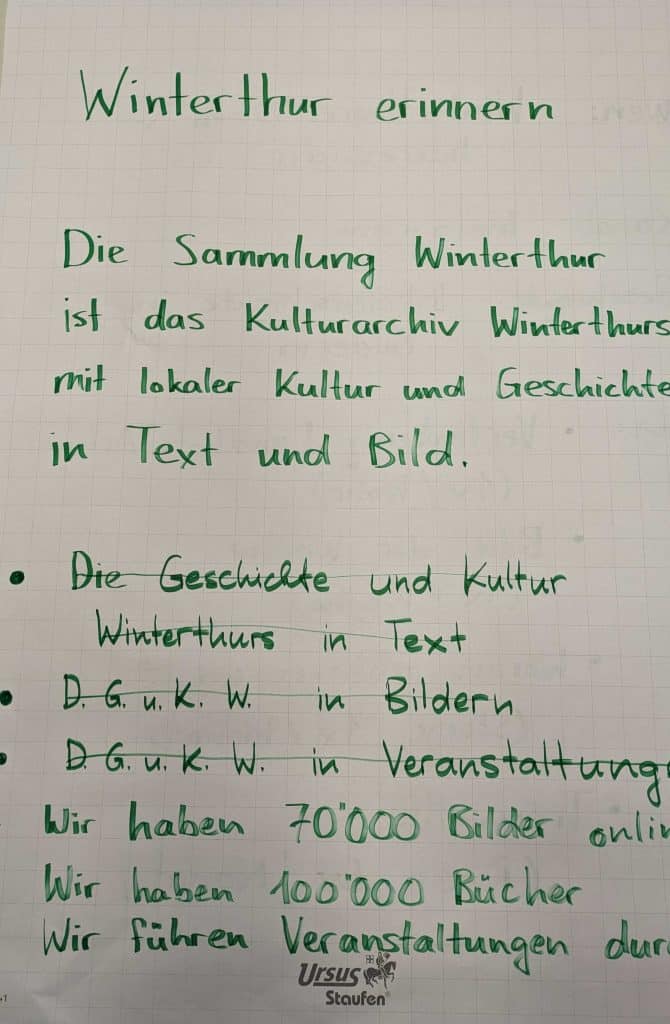 Winterthur erinnern
Die Sammlung Winterthur
ist das Kulturarchiv Winterthurs
mit lokaler Kultur und Geschichte
in Text und Bild.
• Die Geschichte und Kultur
Winterthurs in Text
• D. G. u. K. W. in Bildern
• D. G. u. K. W. in Veranstaltung
Wir haben 70'000 Bilder onlin
Wir haben 100'000 Bücher
Wir führen Veranstaltungen dur
Ursus
Staufen